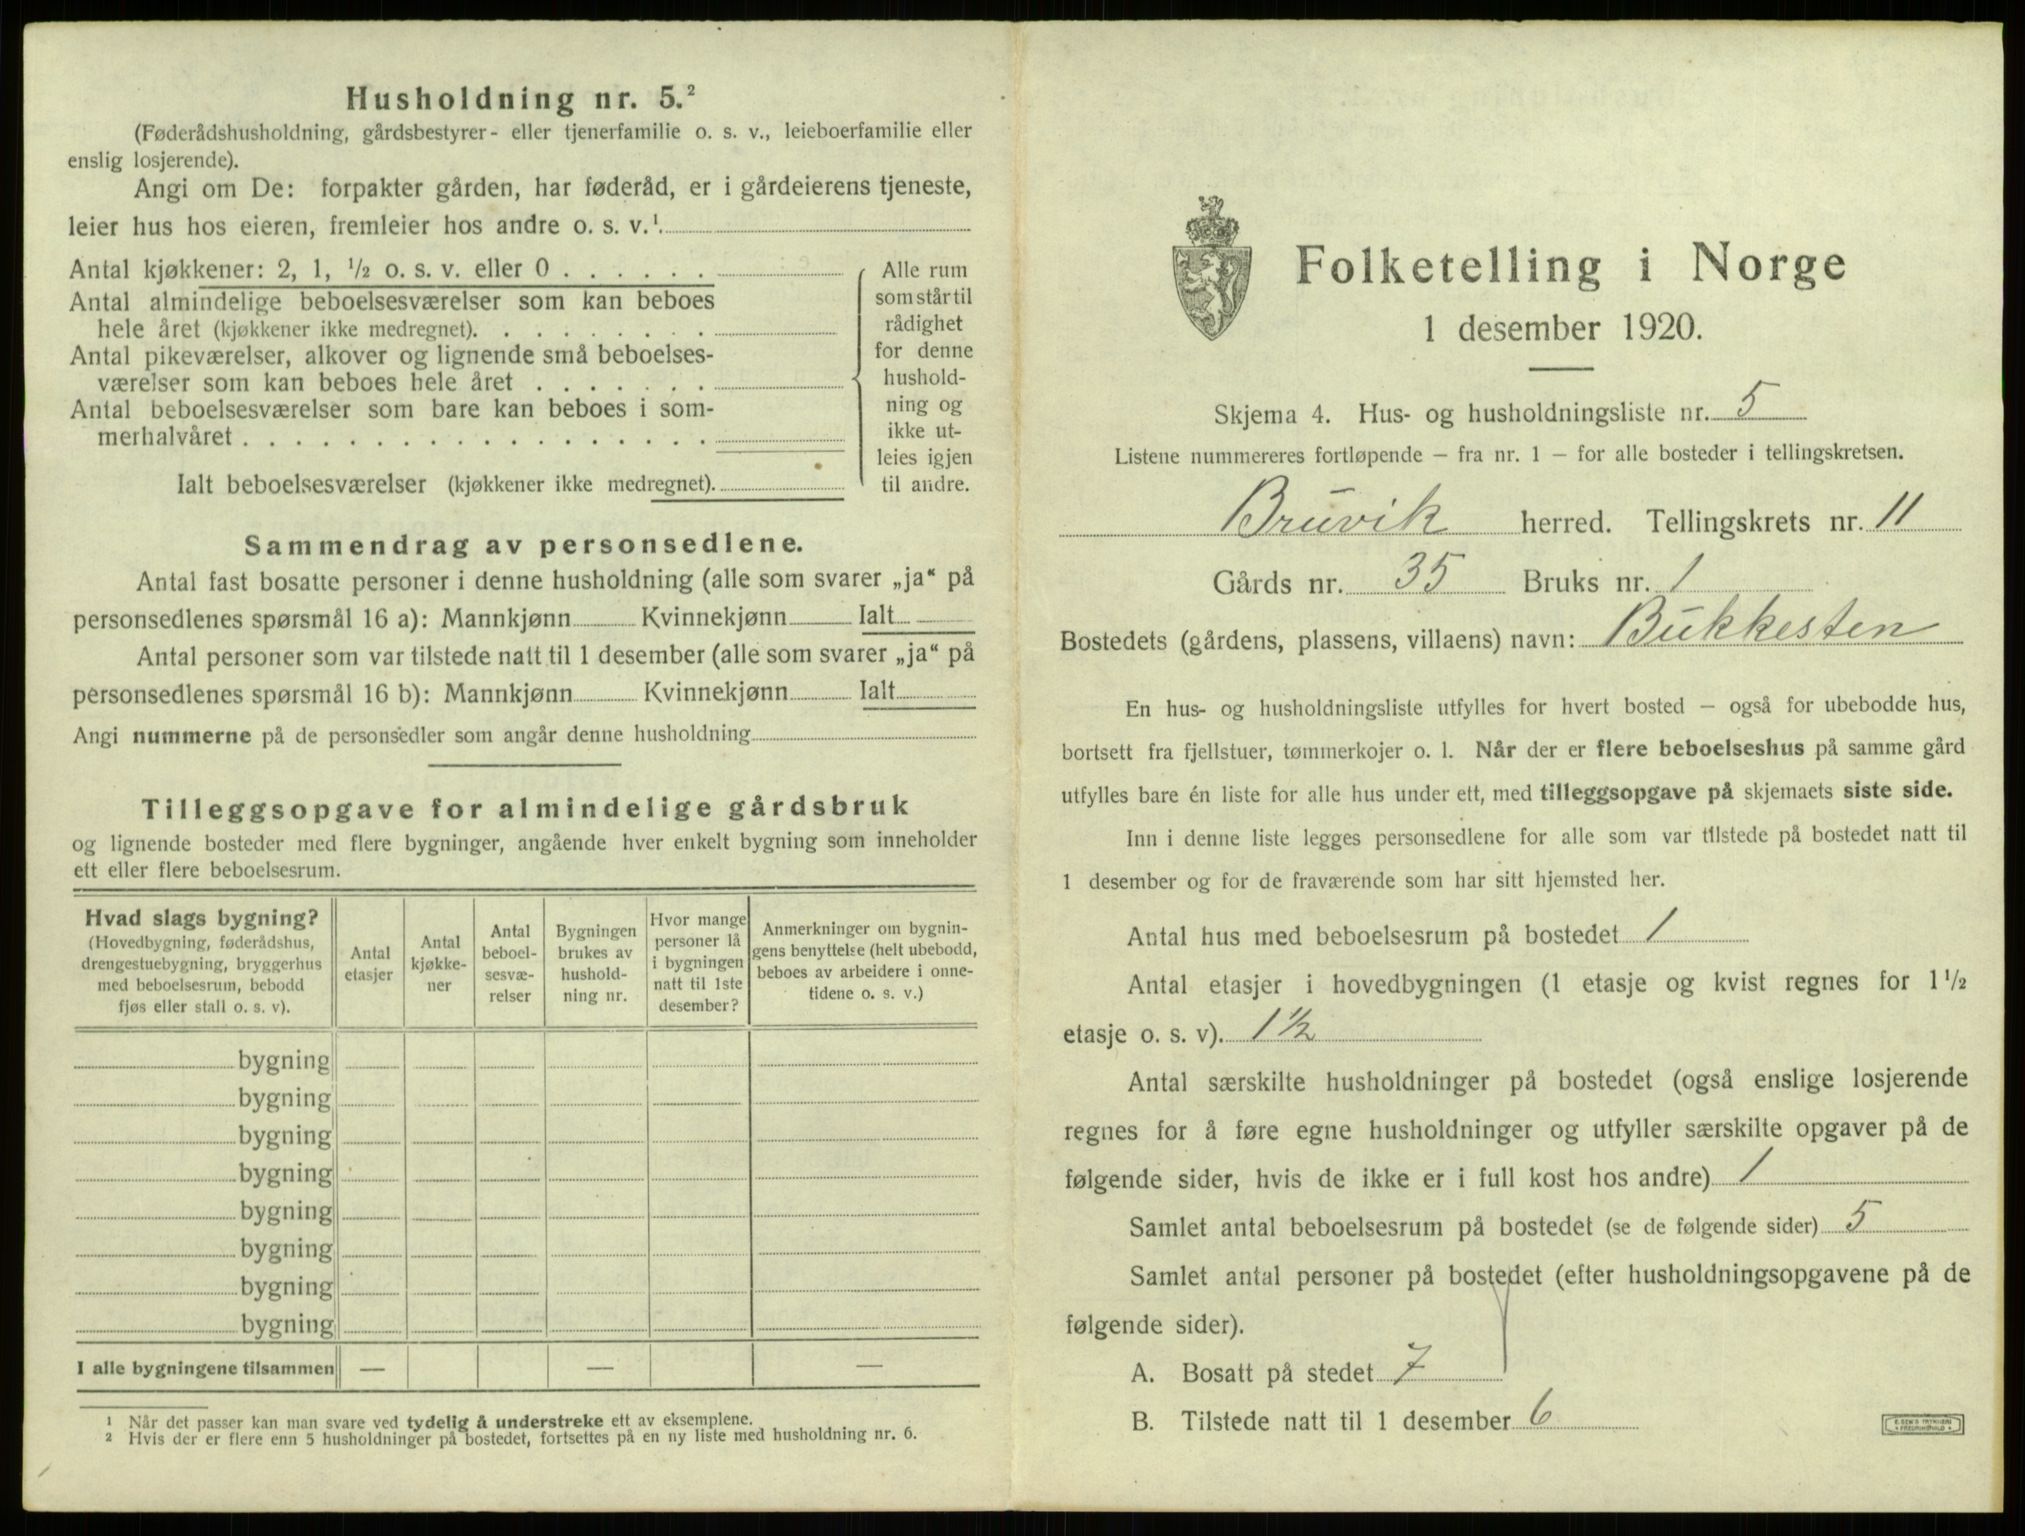 Husholdning nr. 5.²
(Føderådshusholdning, gårdsbestyrer- eller tjenerfamilie o. s. v., leieboerfamilie eller
enslig losjerende).
Angi om De: forpakter gården, har føderåd, er i gårdeierens tjeneste,
leier hus hos eieren, fremleier hos andre o. s. v.¹
Antal kjøkkener: 2, 1, ½ o. s. v. eller 0 . . . . . .
Antal almindelige beboelsesværelser som kan beboes
hele året (kjøkkener ikke medregnet). . . . . . . . .
Antal pikeværelser, alkover og lignende små beboelses-
værelser som kan beboes hele året . . . . . . .
Antal beboelsesværelser som bare kan beboes i som-
merhalvåret . . . . . . . . . . . . . . . . . .
Ialt beboelsesværelser (kjøkkener ikke medregnet).
Alle rum
som står til
rådighet
for denne
hushold-
ning og
ikke ut-
leies igjen
til andre.
Sammendrag av personsedlene.
Antal fast bosatte personer i denne husholdning (alle som svarer „ja“ på
personsedlenes spørsmål 16 a): Mannkjønn Kvinnekjønn Ialt
Antal personer som var tilstede natt til 1 desember (alle som svarer „ja“ på
personsedlenes spørsmål 16 b): Mannkjønn Kvinnekjønn Ialt
Angi nummerne på de personsedler som angår denne husholdning
Tilleggsopgave for almindelige gårdsbruk
og lignende bosteder med flere bygninger, angående hver enkelt bygning som inneholder
ett eller flere beboelsesrum.
Hvad slags bygning?
(Hovedbygning, føderådshus,
drengestuebygning, bryggerhus
med beboelsesrum, bebodd
fjøs eller stall o. s. v).
Antal
etasjer
Antal
kjøkke-
ner
Antal
beboel-
sesvæ-
relser
Bygningen
brukes av
hushold-
ning nr.
Hvor mange
personer lå
i bygningen
natt til 1ste
desember?
Anmerkninger om bygnin-
gens benyttelse (helt ubebodd,
beboes av arbeidere i onne-
tidene o. s. v.)
bygning
bygning
bygning
bygning
bygning
bygning
bygning
bygning
I alle bygningene tilsammen — — —
¹ Når det passer kan man svare ved tydelig å understreke ett av eksemplene.
² Hvis der er flere enn 5 husholdninger på bostedet, fortsettes på en ny liste med husholdning nr. 6.
Folketelling i Norge
1 desember 1920.
Skjema 4. Hus- og husholdningsliste nr. 5
Listene nummereres fortløpende – fra nr. 1 – for alle bosteder i tellingskretsen.
Bruvik herred. Tellingskrets nr. 11
Gårds nr. 35 Bruks nr. 1
Bostedets (gårdens, plassens, villaens) navn: Bukkesten
En hus- og husholdningsliste utfylles for hvert bosted – også for ubebodde hus,
bortsett fra fjellstuer, tømmerkojer o. l. Når der er flere beboelseshus på samme gård
utfylles bare én liste for alle hus under ett, med tilleggsopgave på skjemaets siste side.
Inn i denne liste legges personsedlene for alle som var tilstede på bostedet natt til
1 desember og for de fraværende som har sitt hjemsted her.
Antal hus med beboelsesrum på bostedet 1
Antal etasjer i hovedbygningen (1 etasje og kvist regnes for 1½
etasje o. s. v). 1½
Antal særskilte husholdninger på bostedet (også enslige losjerende
regnes for å føre egne husholdninger og utfyller særskilte opgaver på de
følgende sider, hvis de ikke er i full kost hos andre) 1
Samlet antal beboelsesrum på bostedet (se de følgende sider) 5
Samlet antal personer på bostedet (efter husholdningsopgavene på de
følgende sider).
A. Bosatt på stedet 7
B. Tilstede natt til 1 desember 6